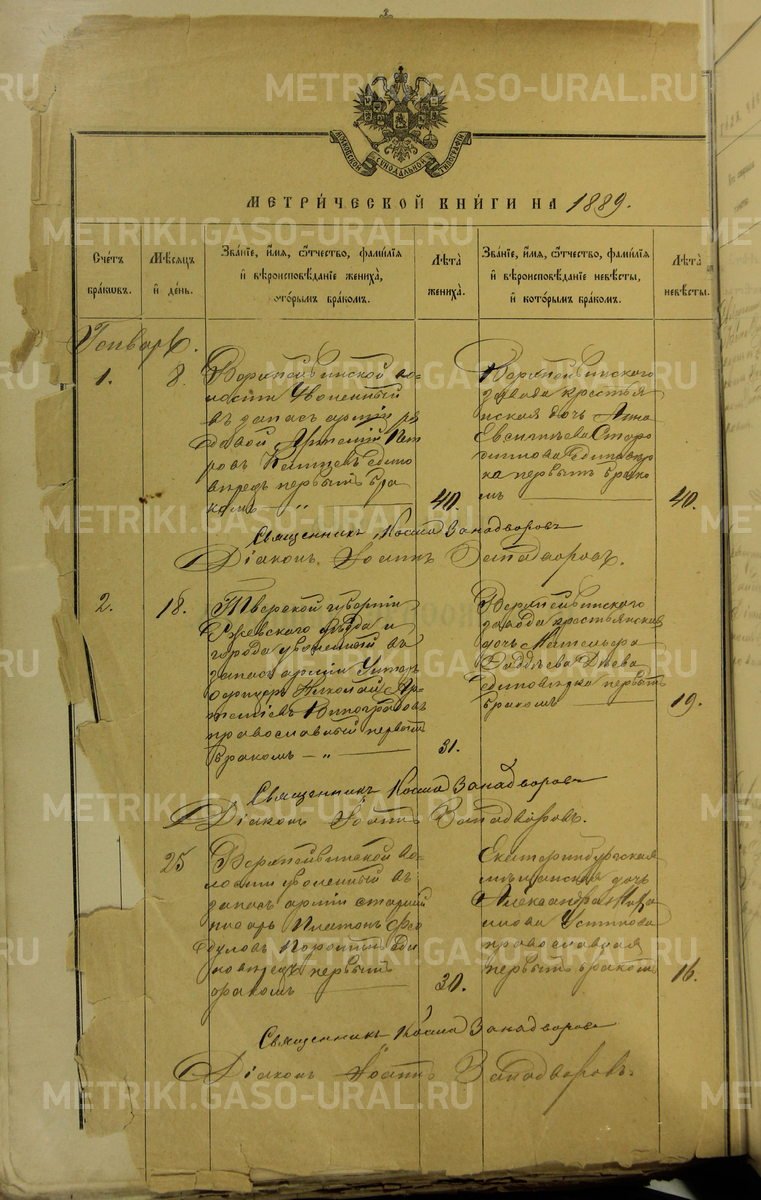 METRIKI.GASO-URAL.RU
МОСКОВСКОЙ СѴНОДАЛЬНОЙ ТИПОГРАФІИ
МЕТРИ́ЧЕСКОЙ КНИ́ГИ НА 1889.
Сче́тъ бра́ковъ.
Мѣ́сѧцъ и҆ де́нь.
Зва́нїе, и҆́мѧ, ѻ҆́тчество, фами́лїѧ
и҆ вѣроисповѣ́данїе жениха̀,
кото́рымъ бра́комъ.
Лѣта̀ жениха̀.
Зва́нїе, и҆́мѧ, ѻ҆́тчество, фами́лїѧ
и҆ вѣроисповѣ́данїе невѣ́сты,
и҆ кото́рымъ бра́комъ.
Лѣта̀ невѣ́сты.
Генварь.
1.
8.
Верхнейвинской во-
лости уволенный
въ запасъ арміи ря
довой Артемій Пет
ровъ
едино
вѣрецъ первымъ бра
комъ — „ —
40.
Верхнейвинскаго
завода крестья
нская дочь Анна
Евсигнѣева Старо
единовѣр
ка первымъ брако
мъ
40.
Священникъ Косма Западворовъ
Діаконъ Іоаннъ Западворовъ.
2.
18.
Тверской губерніи
Ржевскаго уѣзда и
города уволенный въ
запасъ арміи Унтеръ
Офицеръ Николай Ар-
темьевъ Виноградовъ
православный первымъ
бракомъ — „ —
31.
Верхнейвинскаго
завода крестьянская
дочь
единовѣрка первымъ
бракомъ
19.
Священникъ Косма Западворовъ
Діаконъ Іоаннъ Западворовъ.
25
Верхнейвинской во-
лости уволенный въ
запасъ арміи старшій
писарь Платонъ Фео
дуловъ Еди
новѣрецъ первымъ
бракомъ
30.
Екатеринбургская
мѣщанская дочь
Александра
Устинова
православная
первымъ бракомъ
16.
Священникъ Косма Западворовъ
Діаконъ Іоаннъ Западворовъ.